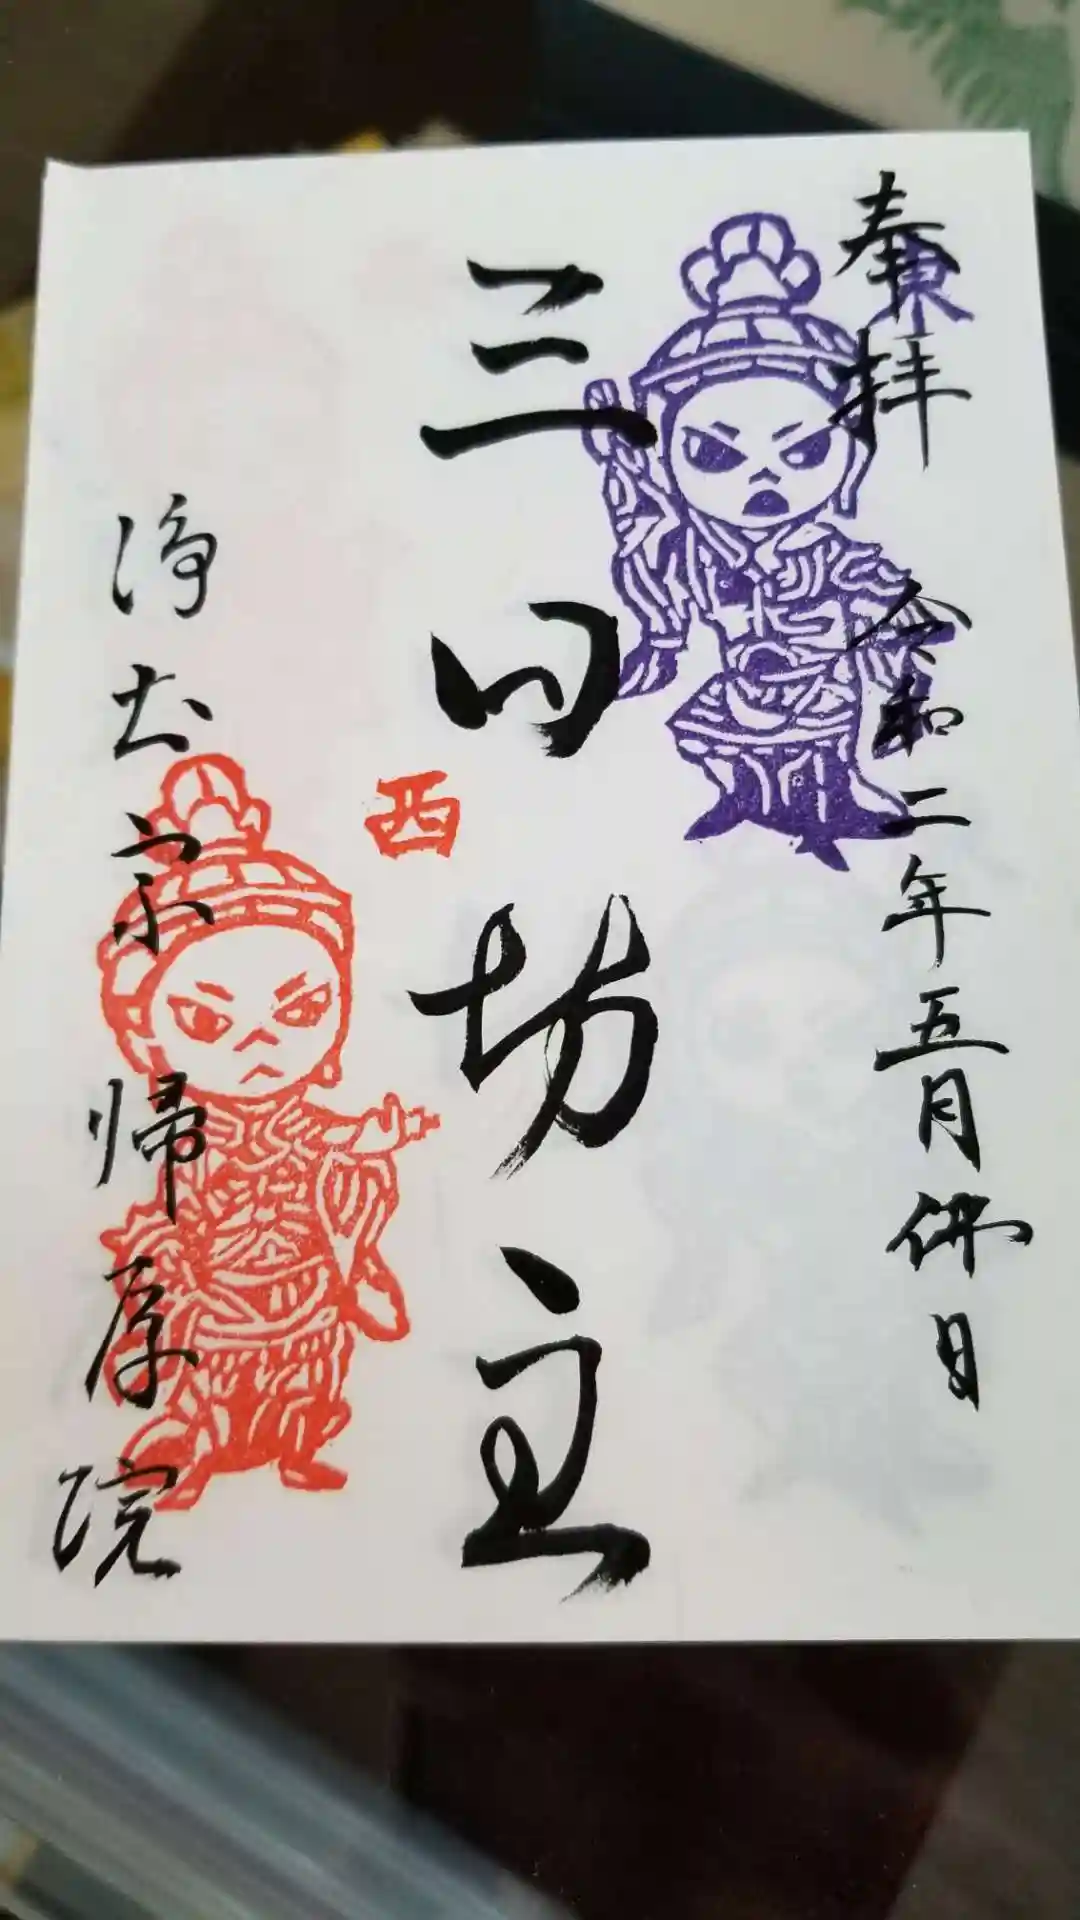 奉拝　令和二年五月佛日
東
三日坊主
西
浄土宗　帰厚院